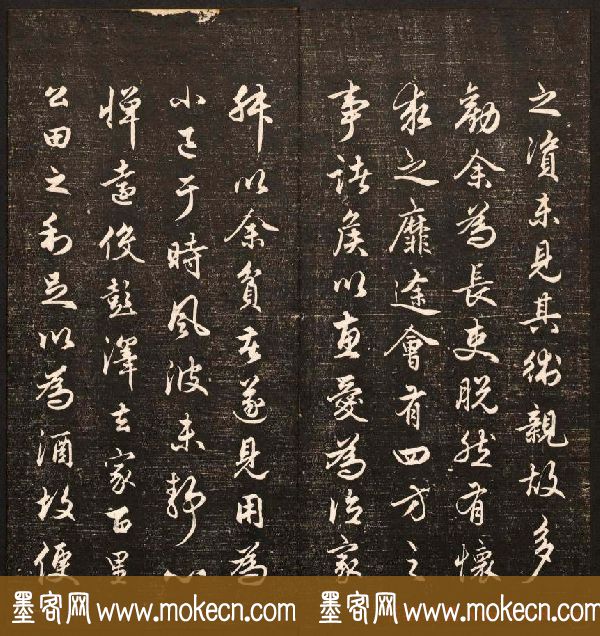 之資未見其術親故多
勸余為長吏脫然有懷
求之靡途會有四方之
事諸侯以惠愛為德家
叔以余貧苦遂見用為
小邑于時風波未靜心
憚遠役彭澤去家百里
公田之利足以為酒故便
墨客网 www.mokecn.com 墨客网 www.mokecn.com